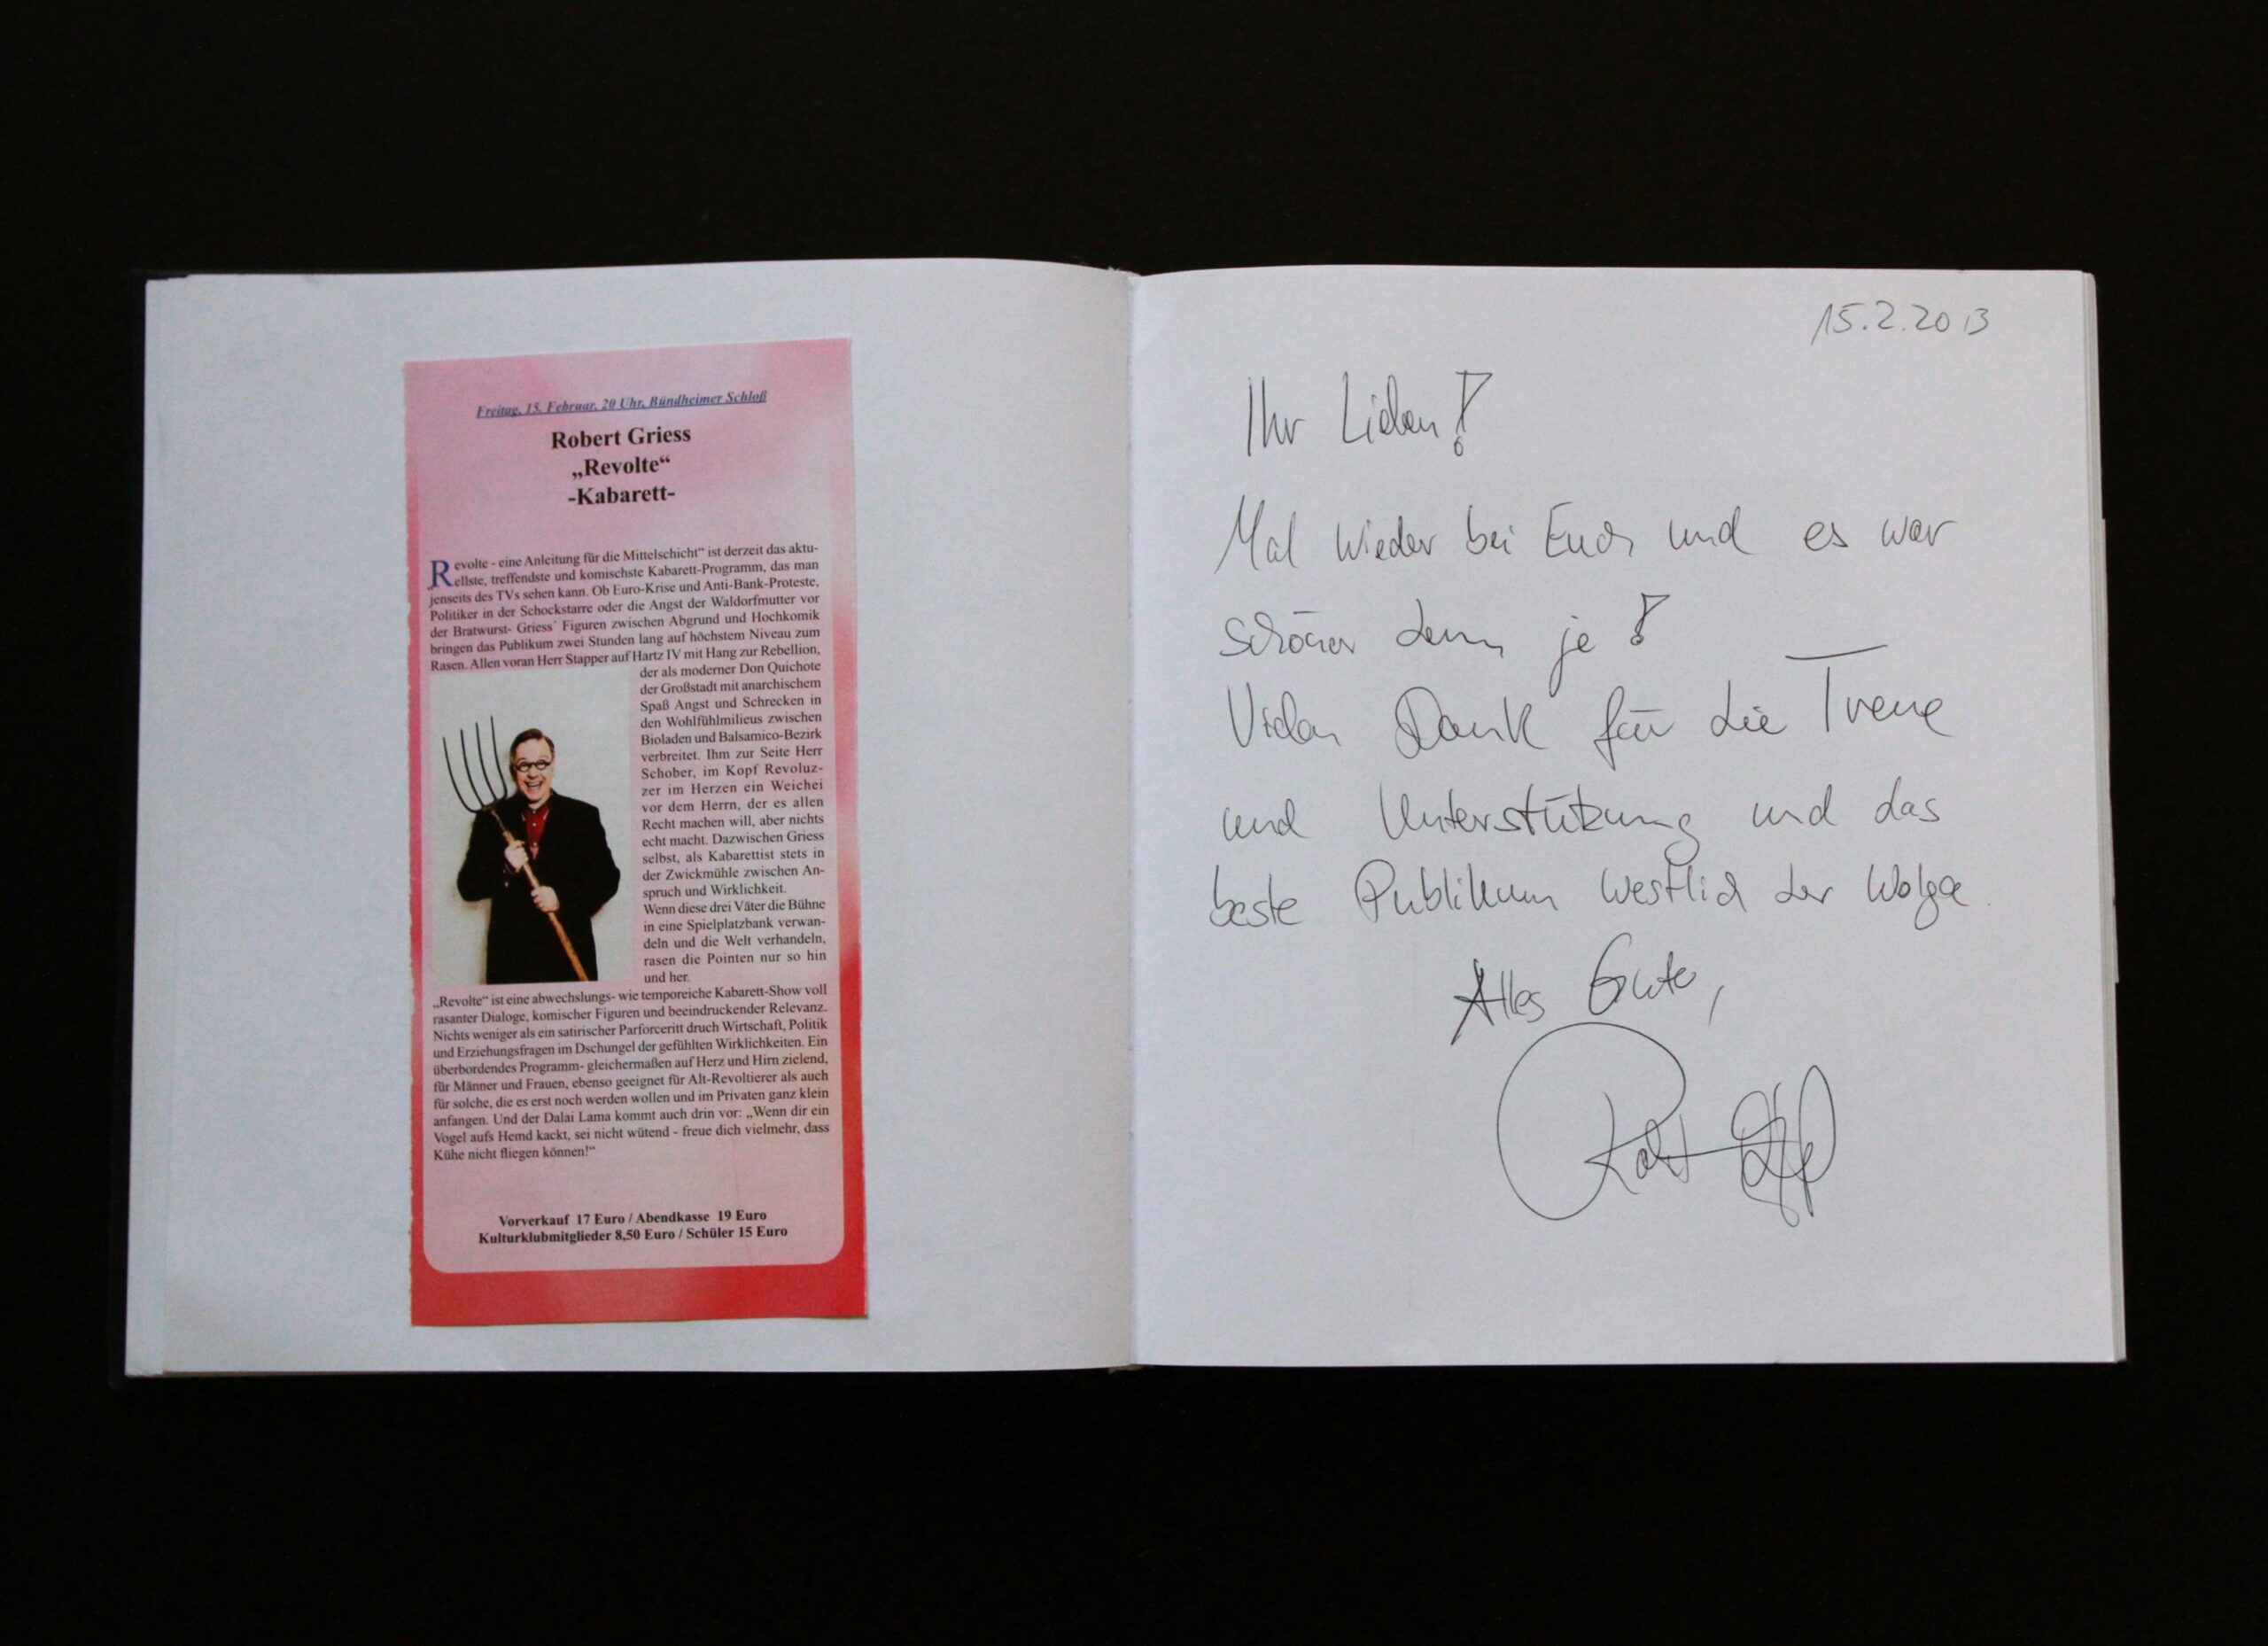 Freitag, 15. Februar, 20 Uhr, Bündheimer Schloß
Robert Griess
„Revolte“
-Kabarett-
Revolte - eine Anleitung für die Mittelschicht“ ist derzeit das aktu-
ellste, treffendste und komischste Kabarett-Programm, das man
jenseits des TVs sehen kann. Ob Euro-Krise und Anti-Bank-Proteste,
Politiker in der Schockstarre oder die Angst der Waldorfmutter vor
der Bratwurst- Griess´ Figuren zwischen Abgrund und Hochkomik
bringen das Publikum zwei Stunden lang auf höchstem Niveau zum
Rasen. Allen voran Herr Stapper auf Hartz IV mit Hang zur Rebellion,
der als moderner Don Quichote
der Großstadt mit anarchischem
Spaß Angst und Schrecken in
den Wohlfühlmilieus zwischen
Bioladen und Balsamico-Bezirk
verbreitet. Ihm zur Seite Herr
Schober, im Kopf Revoluz-
zer im Herzen ein Weichei
vor dem Herrn, der es allen
Recht machen will, aber nichts
echt macht. Dazwischen Griess
selbst, als Kabarettist stets in
der Zwickmühle zwischen An-
spruch und Wirklichkeit.
Wenn diese drei Väter die Bühne
in eine Spielplatzbank verwan-
deln und die Welt verhandeln,
rasen die Pointen nur so hin
und her.
„Revolte“ ist eine abwechslungs- wie temporeiche Kabarett-Show voll
rasanter Dialoge, komischer Figuren und beeindruckender Relevanz.
Nichts weniger als ein satirischer Parforceritt druch Wirtschaft, Politik
und Erziehungsfragen im Dschungel der gefühlten Wirklichkeiten. Ein
überbordendes Programm- gleichermaßen auf Herz und Hirn zielend,
für Männer und Frauen, ebenso geeignet für Alt-Revoltierer als auch
für solche, die es erst noch werden wollen und im Privaten ganz klein
anfangen. Und der Dalai Lama kommt auch drin vor: „Wenn dir ein
Vogel aufs Hemd kackt, sei nicht wütend - freue dich vielmehr, dass
Kühe nicht fliegen können!“
Vorverkauf 17 Euro / Abendkasse 19 Euro
Kulturklubmitglieder 8,50 Euro / Schüler 15 Euro
15.2.2013
Ihr Lieben!
Mal wieder bei Euch und es war
schöner denn je!
Vielen Dank für die Treue
und Unterstützung und das
beste Publikum westlich der Wolga.
Alles Gute,
Robert Griess